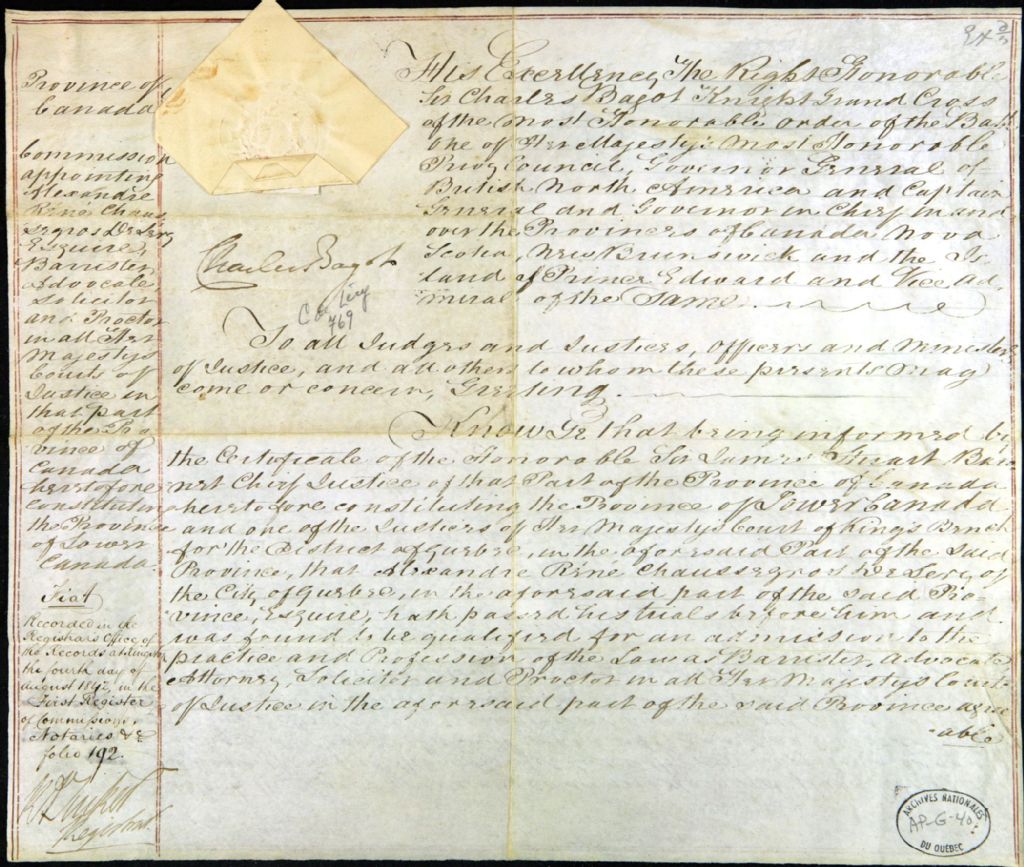 Province of
Canada
Commission
appointing
Alexandre
Réné Chaus
segros De Lery
Esquire,
Barrister
Advocate,
Solicitor
and Proctor
in all Her
Majestys
Courts of
Justice in
that part
of the Pro
vince of
Canada
heretofore
constituting
the Province
of Lower
Canada
Fiat
Recorded in the
Registrars Office of
the Records at
the fourth day of
august 1842, in the
First Register
of Commissions,
Notaries &c
folio 192.
Registrar
His Excellency The Right Honorable
Sir Charles Bagot Knight Grand Cross
of the most Honorable Order of the Bath
one of Her Majesty's Most Honorable
Privy Council, Governor General of
British North America and Captain
General and Governor in Chief in and
over the Provinces of Canada Nova
Scotia, New Brunswick and the Is
land of Prince Edward and Vice Ad,
miral of the Same.
Charles Bagot
769
To all Judges and Justices, Officers and Ministers
of Justice, and all others to whom these presents may
come or concern, Greeting.
Know Ye that being informed by
the Certificate of the Honorable Sir James Stuart Baro
net Chief Justice of that Part of the Province of Canada
heretofore constituting the Province of Lower Canada
and one of the Justices of Her Majesty's Court of King's Bench
for the District of Quebec, in the aforesaid Part of the said
Province, that Alexandre Réné Chaussegros De Lery, of
the City of Quebec, in the aforesaid part of the said Pro-
vince, Esquire, hath passed his trials before him and
was found to be qualified for an admission to the
practice and Profession of the Law as Barrister, Advocate
Attorney, Solicitor and Proctor in all Her Majesty's Courts
of Justice in the aforesaid part of the said Province agree
-able
ARCHIVES NATIONALES
AP-G-40
DU QUÉBEC